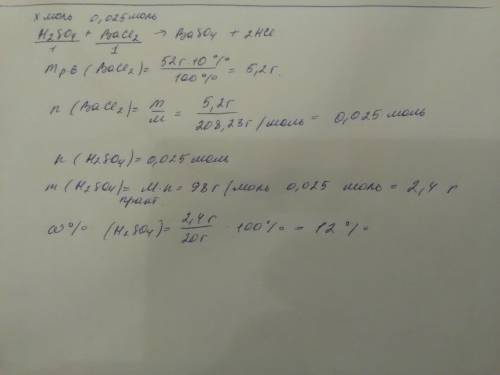 х моль 0,025 моль
H2SO4 + BaCl2 → BaSO4 + 2HCl
1 1
mр.в (BaCl2) = 52г · 10 % / 100 % = 5,2 г.
n (BaCl2) = m / M = 5,2 г / 208,23 г/моль = 0,025 моль
n (H2SO4) = 0,025 моль
m (H2SO4) = M · n = 98 г/моль 0,025 моль = 2,4 г
практ
ω% (H2SO4) = 2,4 г / 20 г · 100 % = 12 %